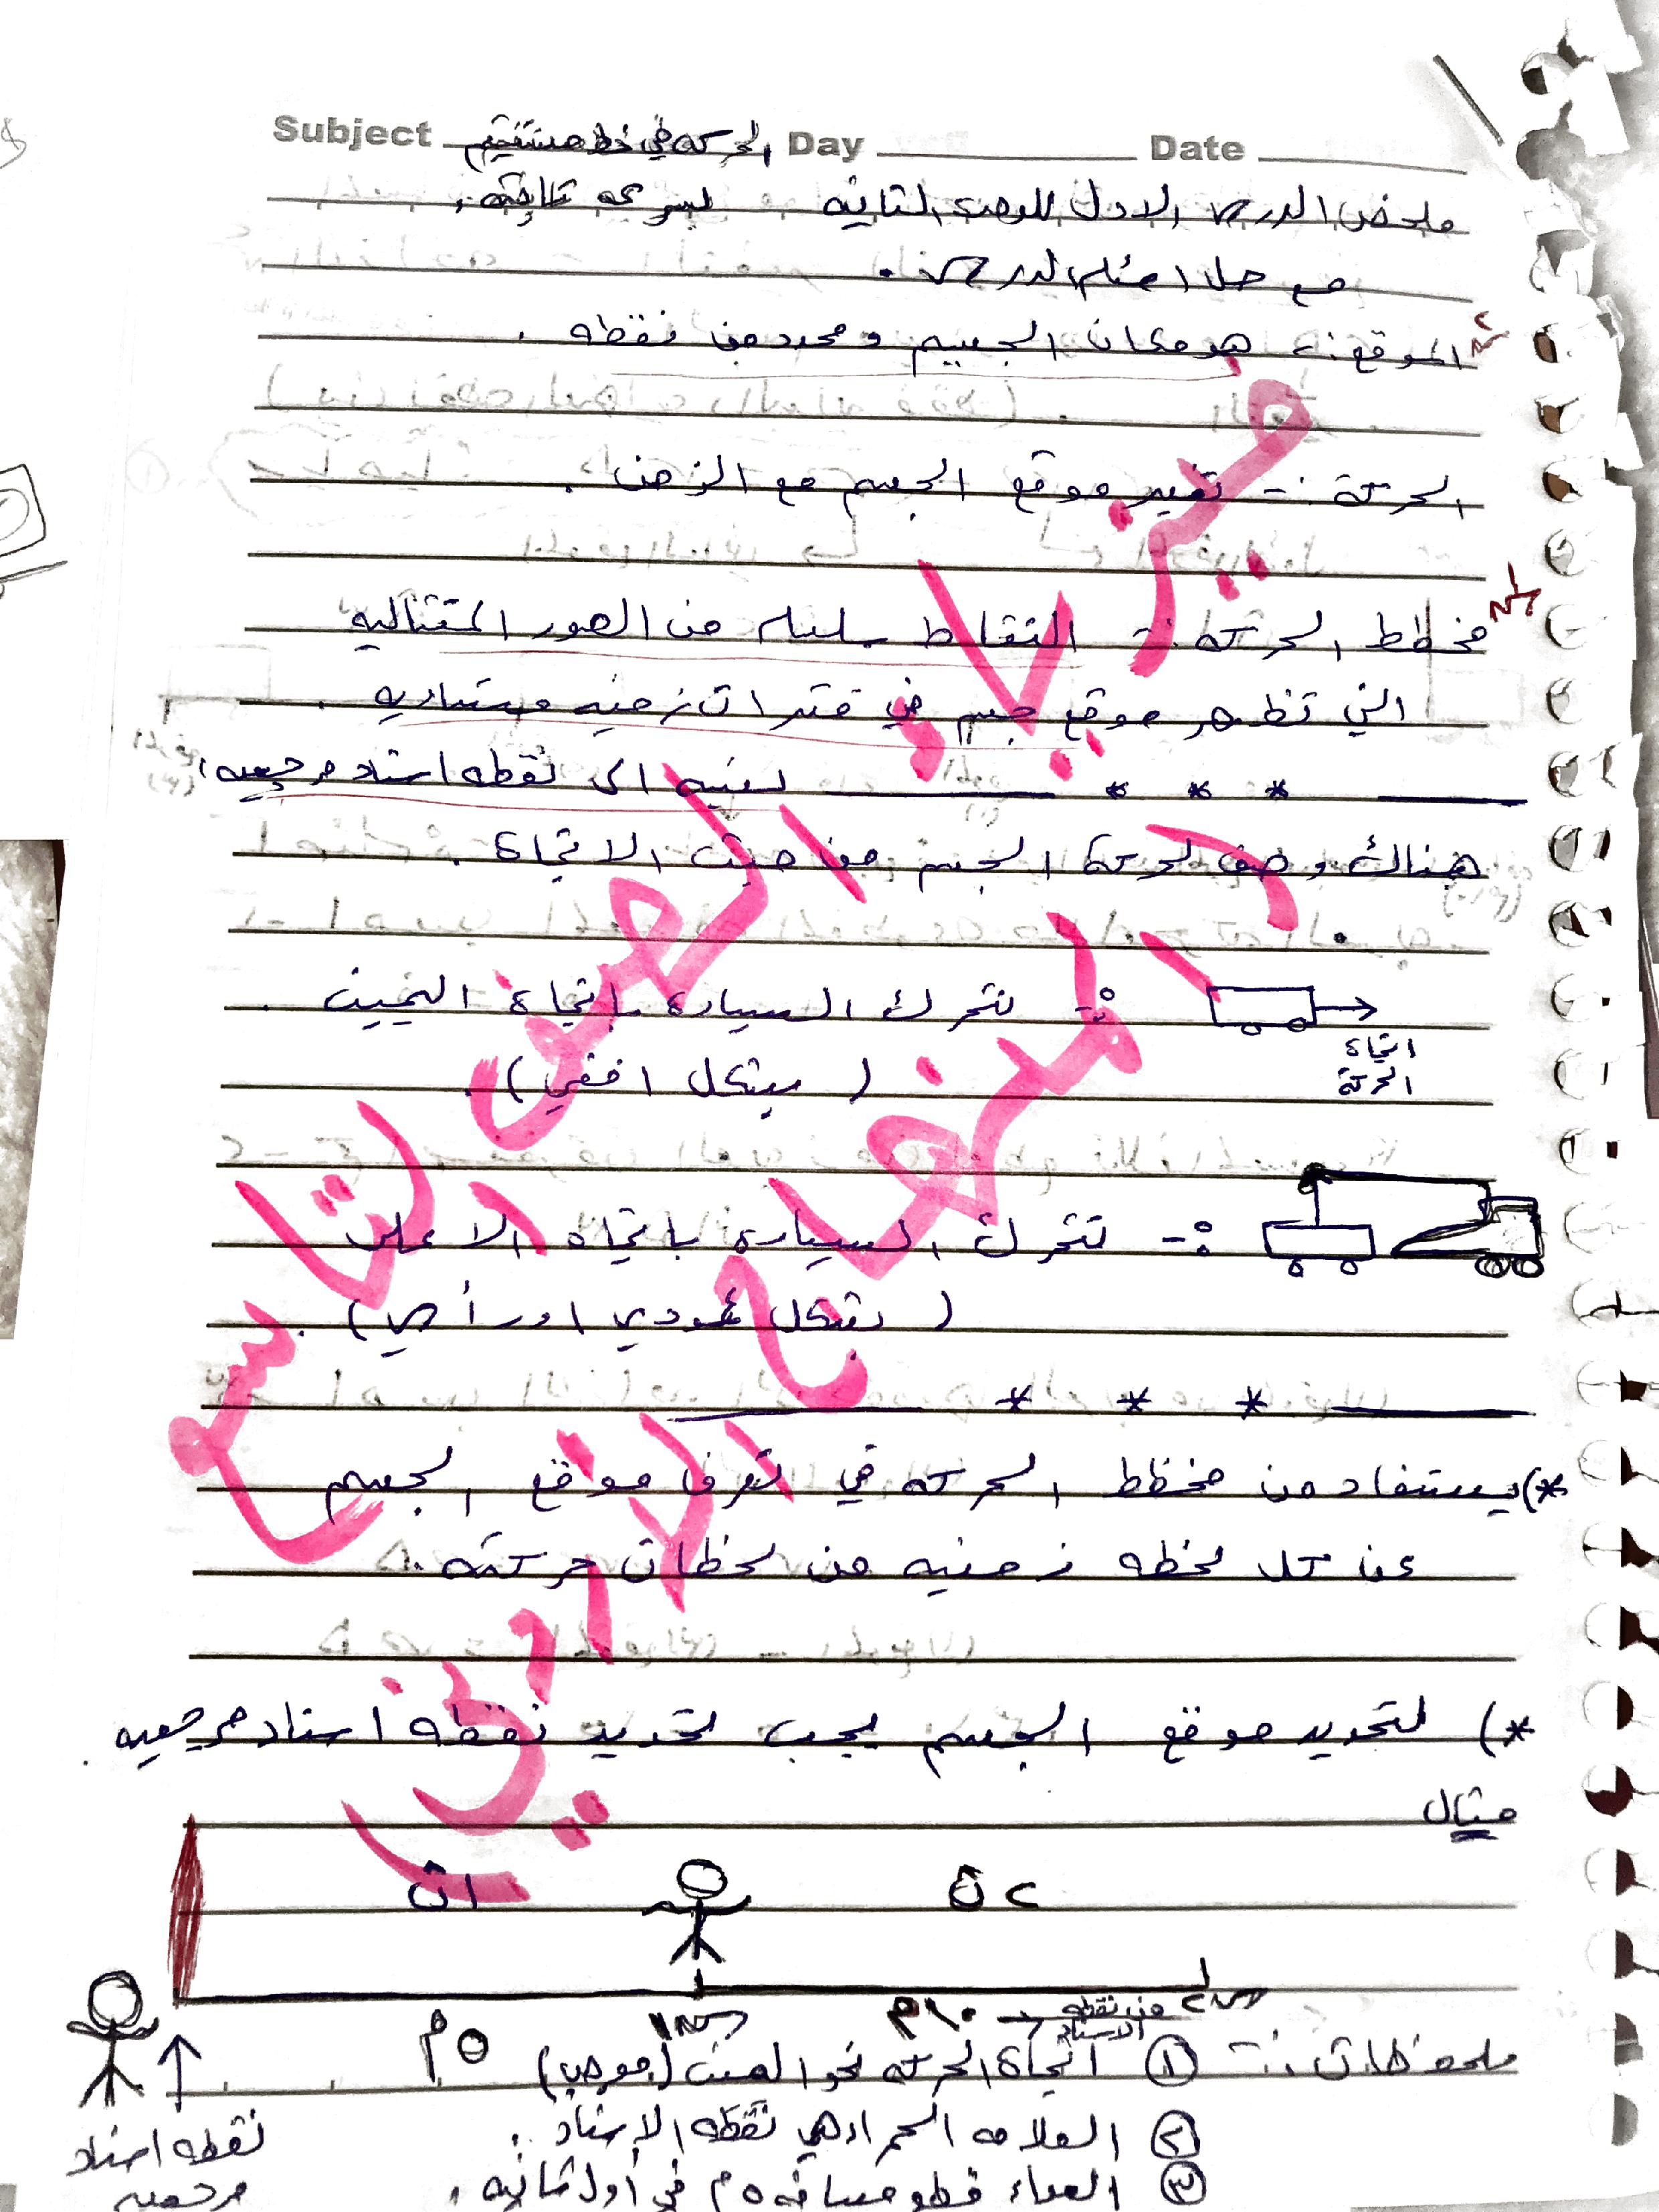 Subject الحركة في خط مستقيم Day Date
ملخص الدرس الاول للوحدة الثانيه بسرعة ثابته.
مع حل اسئله الدرس.
الموقع :- هو مكان الجسم ومحدد من نقطه.
الحركة :- تغير موقع الجسم مع الزمن.
مخطط الحركة :- التقاط سلسله من الصور المتتاليه
التي تظهر موقع جسم في فترات زمنيه متساويه.
* * * نسبه الى نقطه اسناد مرجعيه.
هناك وصف لحركة الجسم من حيث الاتجاة.
:- تتحرك السيارة باتجاة اليمين.
اتجاة
الحركة
(بشكل افقي).
:- تتحرك السيارة باتجاه الاعلى
(بشكل عمودي او رأسي).
* * *
*) يستفاد من مخطط الحركه في تعرف موقع الجسم
عند كل لحظه زمنيه من لحظات حركته.
*) لتحديد موقع الجسم يجب تحديد نقطه اسناد مرجعيه.
مثال
١ث ٢ث
س١ س٢
٥م ١٠م من نقطه الاسناد
ملحوظات :- ١ اتجاة الحركه نحو اليمين (موجب)
٢ العلامه الحمراء هي نقطه الإسناد.
٣ العداء قطع مسافه ٥م في أول ثانيه.
نقطه اسناد
مرجعيه
المنهاج الاردني
الصف التاسع